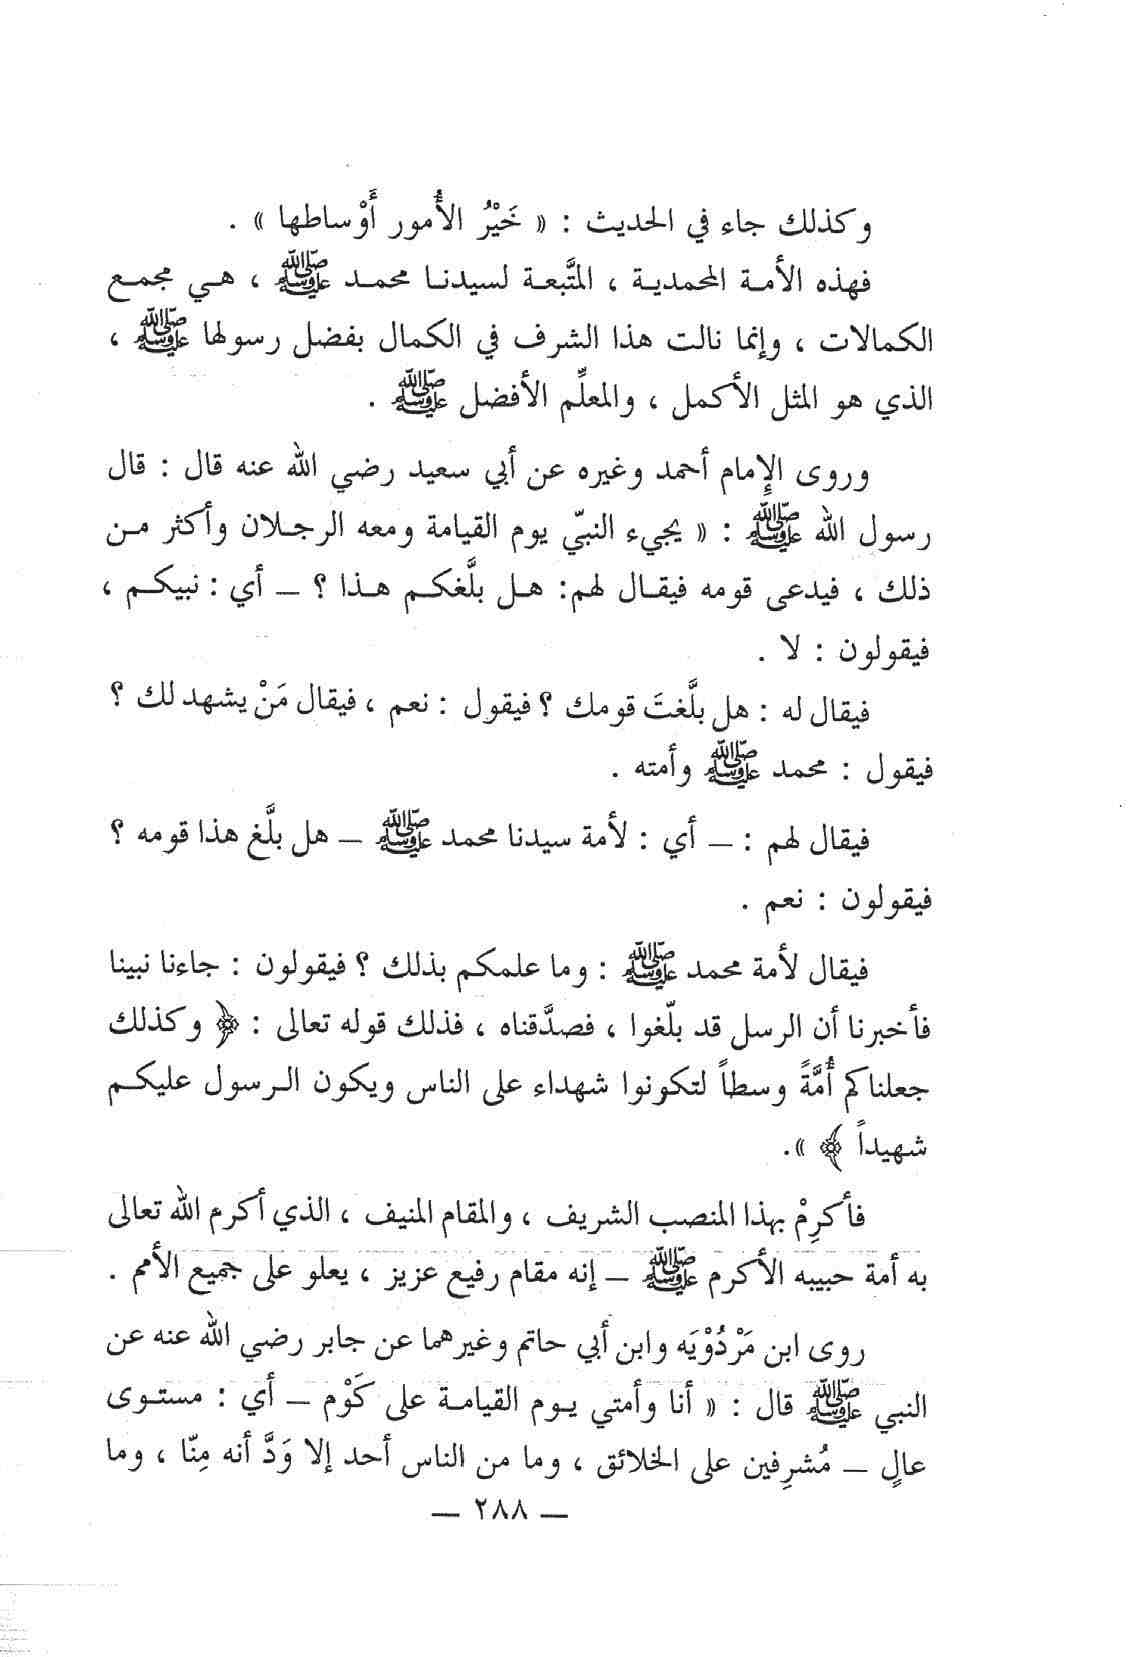 وكذلك جاء في الحديث : « خَيْرُ الأُمور أَوْساطها » .
فهذه الأمـة المحمديـة ، المتَّبعـة لسيدنـا محمـد ﷺ ، هـي مجمـع
الكمالات ، وإنما نالت هذا الشرف في الكمال بفضل رسولها ﷺ ،
الذي هو المثل الأكمل ، والمعلِّم الأفضل ﷺ .
وروى الإِمام أحمد وغيره عن أبي سعيد رضي الله عنه قال : قال
رسول الله ﷺ : « يجيء النبيّ يوم القيامة ومعه الرجـلان وأكثر مـن
ذلك ، فيدعى قومه فيقـال لهم: هـل بلَّغكـم هـذا ؟ ــ أي : نبيكـم ،
فيقولون : لا .
فيقال له : هل بلَّغتَ قومك ؟ فيقول : نعم ، فيقال مَنْ يشهد لك ؟
فيقول : محمد ﷺ وأمته .
فيقال لهم : ــ أي : لأمة سيدنا محمد ﷺ ــ هل بلَّغ هذا قومه ؟
فيقولون : نعم .
فيقال لأمة محمد ﷺ : وما علمكم بذلك ؟ فيقولون : جاءنا نبينا
فأخبرنا أن الرسل قد بلّغوا ، فصدَّقناه ، فذلك قوله تعالى : ﴿ وكذلك
جعلناكم أُمَّةً وسطاً لتكونوا شهداء على الناس ويكون الـرسول عليكـم
شهيداً ﴾ ».
فأكرِمْ بهذا المنصب الشريف ، والمقام المنيف ، الذي أكرم الله تعالى
به أمة حبيبه الأكرم ﷺ ــ إنه مقام رفيع عزيز ، يعلو على جميع الأمم .
روى ابن مَرْدُوْيَه وابن أبي حاتم وغيرهما عن جابر رضي الله عنه عن
النبي ﷺ قال : « أنا وأمتي يـوم القيامـة على كَوْم ــ أي : مستـوى
عالٍ ــ مُشرِفين على الخلائق ، وما من الناس أحد إلا وَدَّ أنه مِنّا ، وما
ــ ٢٨٨ ــ